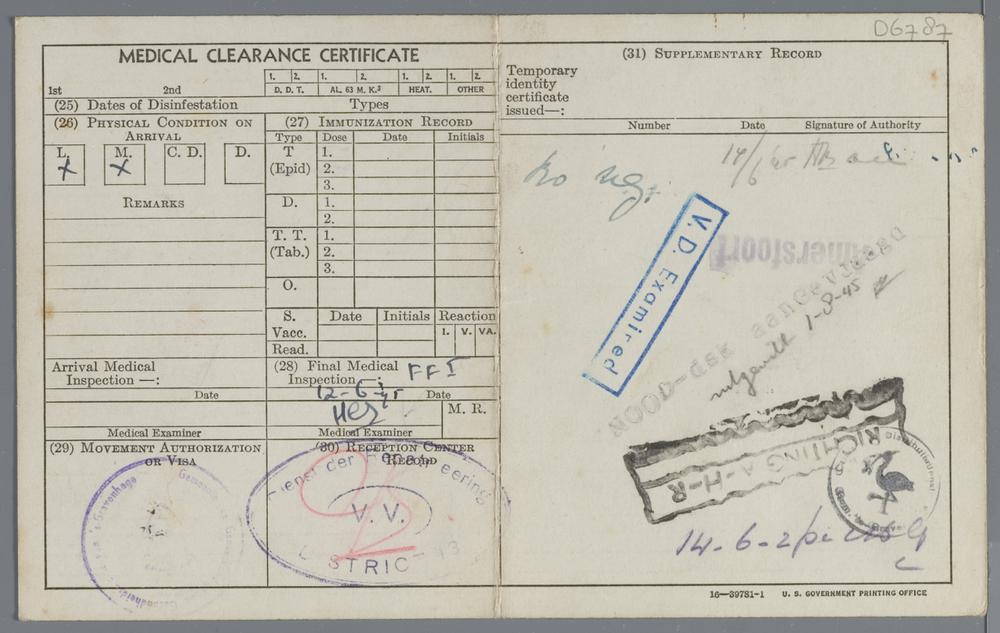 D6787
MEDICAL CLEARANCE CERTIFICATE
1. 2. 1. 2. 1. 2. 1. 2.
1st 2nd D. D. T. AL. 63 M. K.² HEAT. OTHER
(25) Dates of Disinfestation Types
(26) Physical Condition on
Arrival
L. M. C. D. D.
x x
Remarks
(27) Immunization Record
Type Dose Date Initials
T 1.
(Epid) 2.
3.
D. 1.
2.
T. T. 1.
(Tab.) 2.
3.
O.
S. Date Initials Reaction
Vacc. I. V. VA.
Read.
Arrival Medical
Inspection —:
Date
Medical Examiner
(28) Final Medical
Inspection —: FFI
12-6-45 Date
M. R.
Medical Examiner
(29) Movement Authorization
or Visa
(30) Reception Center
Record
's Gravenhage
V. V.
(31) Supplementary Record
Temporary
identity
certificate
issued—:
Number Date Signature of Authority
V. D. Examined
Amersfoort
NOOD-dsk aangevraagd
1-8-45
RICHTING A-H-R
14-6-
16—39781-1 U. S. GOVERNMENT PRINTING OFFICE